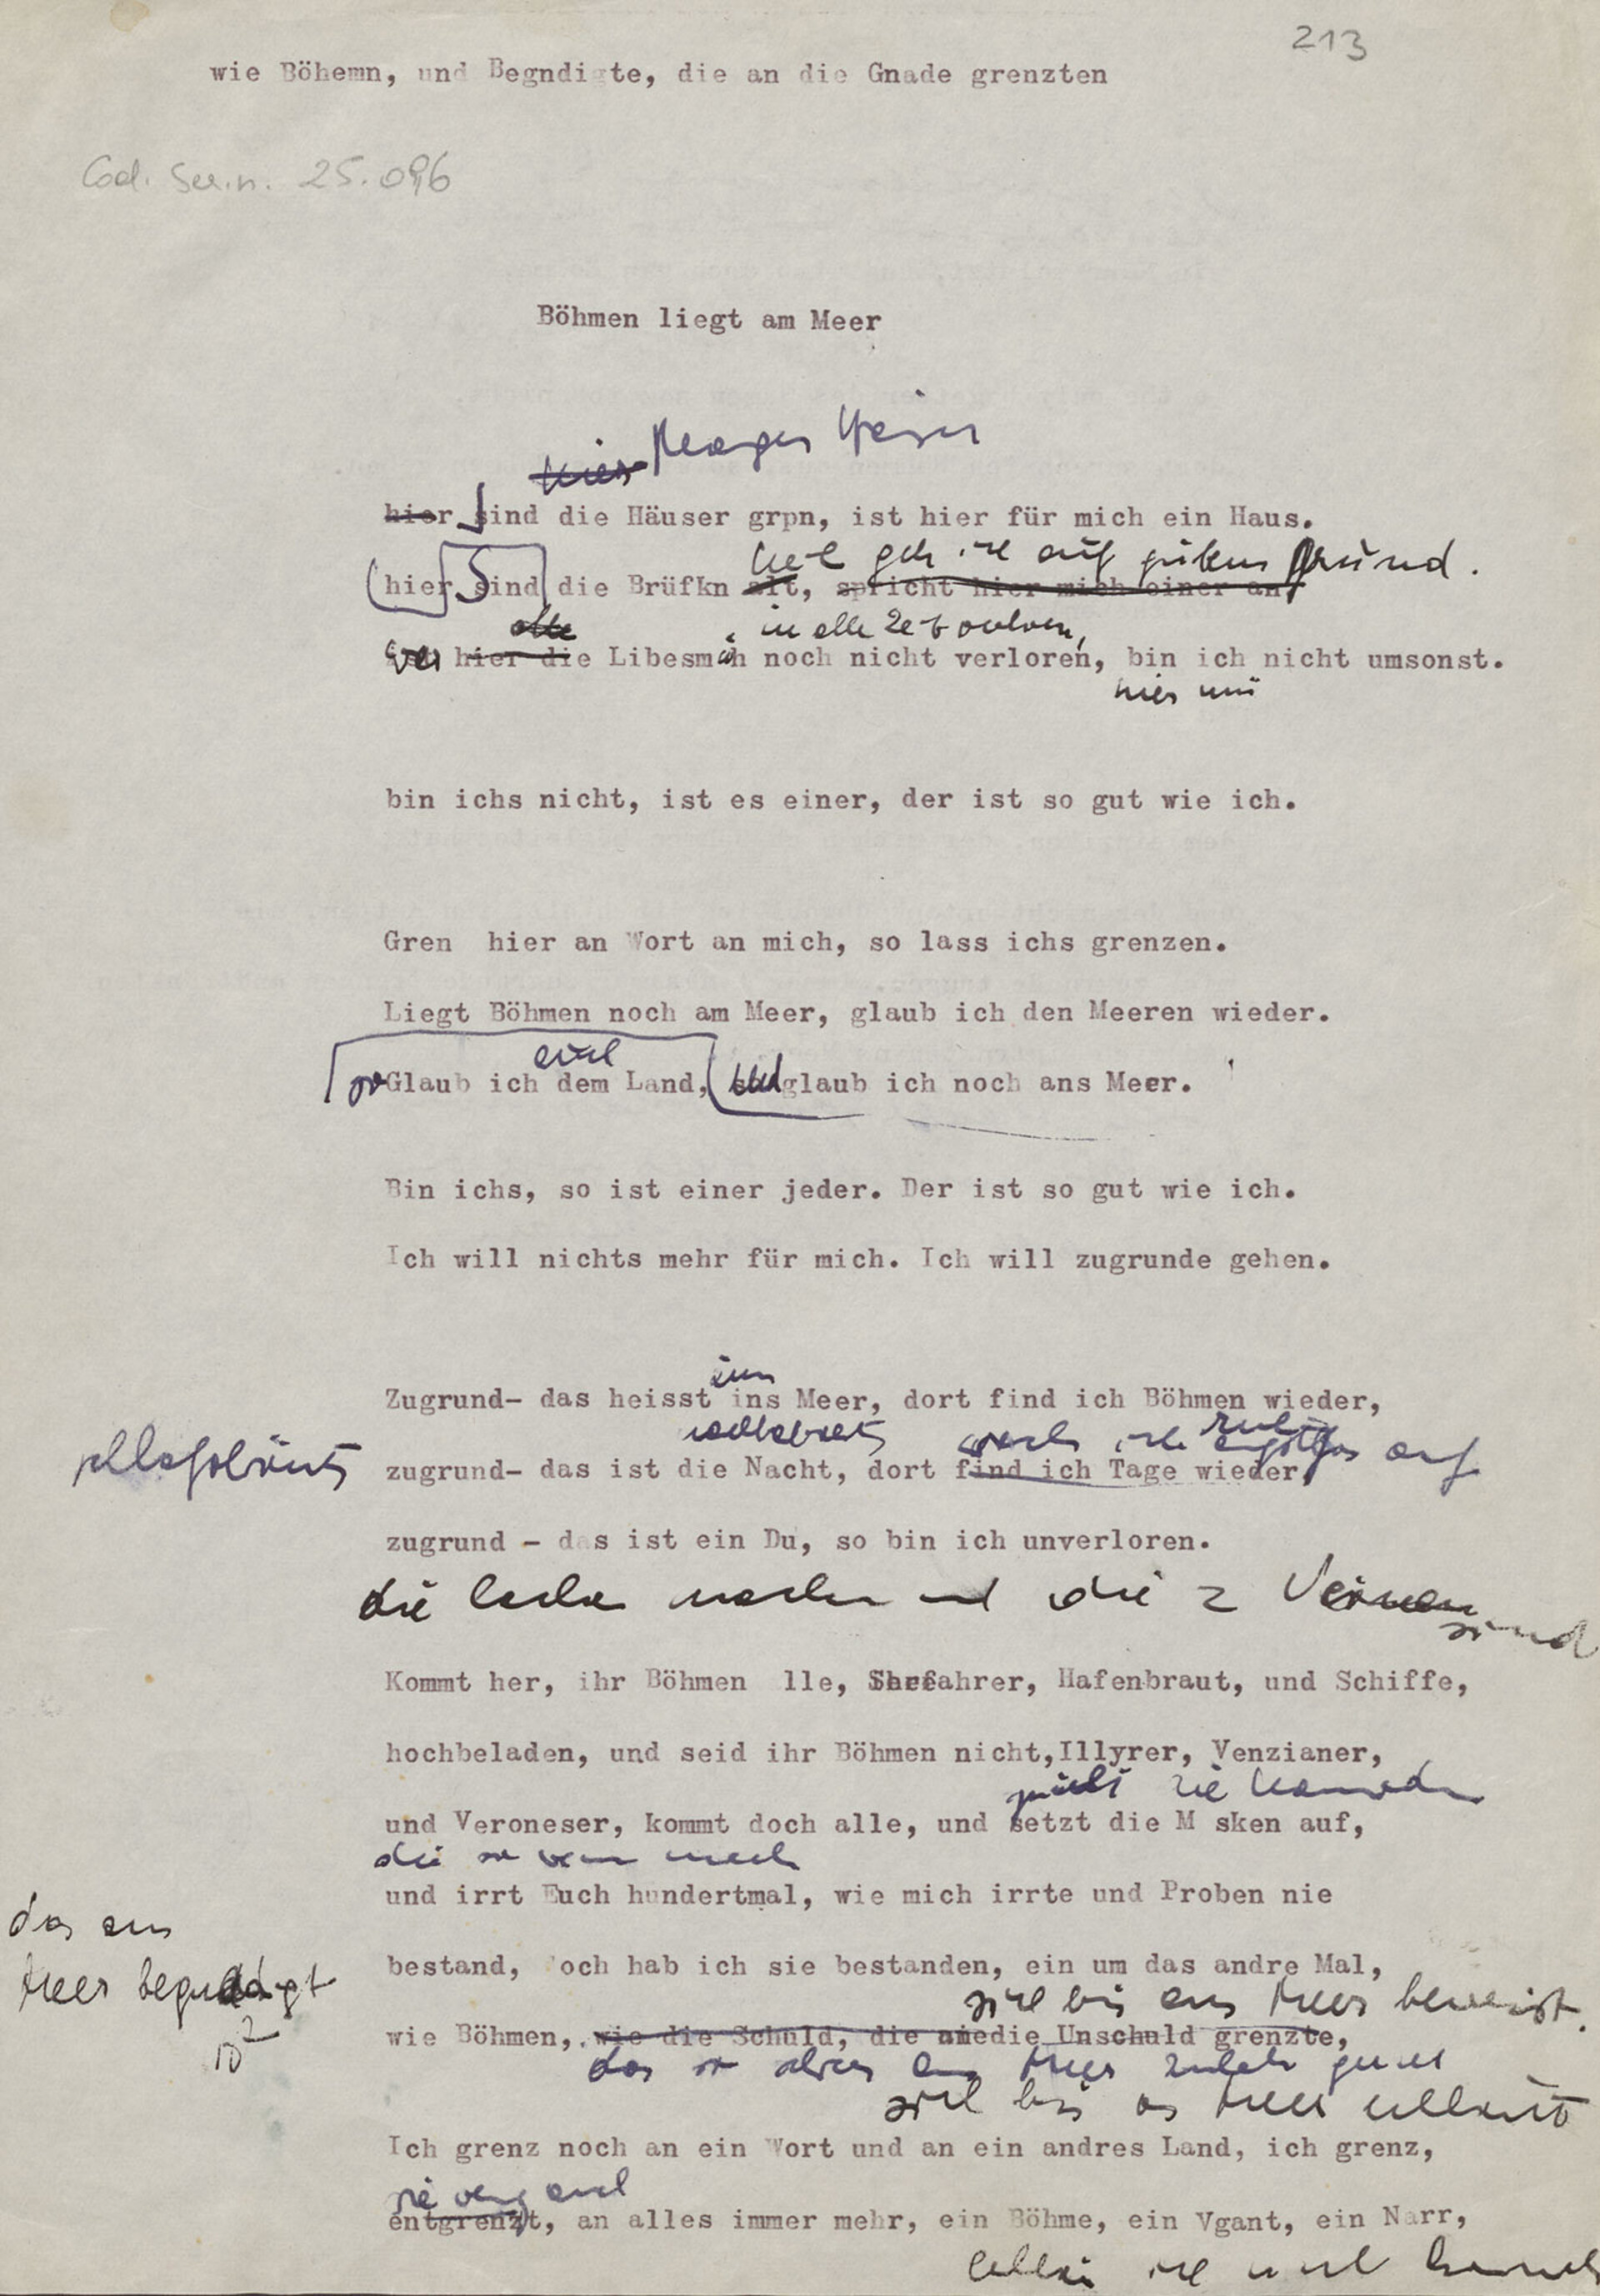 213
wie Böhemn, und Begndigte, die an die Gnade grenzten
Cod. Ser.n. 25.096
Böhmen liegt am Meer
hier
hier sind die Häuser grpn, ist hier für mich ein Haus.
geh ich auf gutem Grund.
hier sind die Brüfkn alt, spricht hier mich einer an,
alle
in alle Zeit verloren,
hier die Libesmüh noch nicht verloren, bin ich nicht umsonst.
hier nur
bin ichs nicht, ist es einer, der ist so gut wie ich.
Gren hier an Wort an mich, so lass ichs grenzen.
Liegt Böhmen noch am Meer, glaub ich den Meeren wieder.
auch
Glaub ich dem Land, und glaub ich noch ans Meer.
Bin ichs, so ist einer jeder. Der ist so gut wie ich.
Ich will nichts mehr für mich. Ich will zugrunde gehen.
zum
Zugrund- das heisst ins Meer, dort find ich Böhmen wieder,
wach ich ruhig auf
zugrund- das ist die Nacht, dort find ich Tage wieder,
zugrund - das ist ein Du, so bin ich unverloren.
die und die
sind
Kommt her, ihr Böhmen lle, Seefahrer, Hafenbraut, und Schiffe,
hochbeladen, und seid ihr Böhmen nicht,Illyrer, Venzianer,
spielt die Komödien
und Veroneser, kommt doch alle, und setzt die M sken auf,
die
und irrt Euch hundertmal, wie mich irrte und Proben nie
das ans
Meer begnadigt
bestand, och hab ich sie bestanden, ein um das andre Mal,
sich bis ans Meer beweist.
wie Böhmen, wie die Schuld, die an die Unschuld grenzte,
das ans Meer
sich bis ans Meer
Ich grenz noch an ein Wort und an ein andres Land, ich grenz,
wie wenig auch
entgrenzt, an alles immer mehr, ein Böhme, ein Vgant, ein Narr,